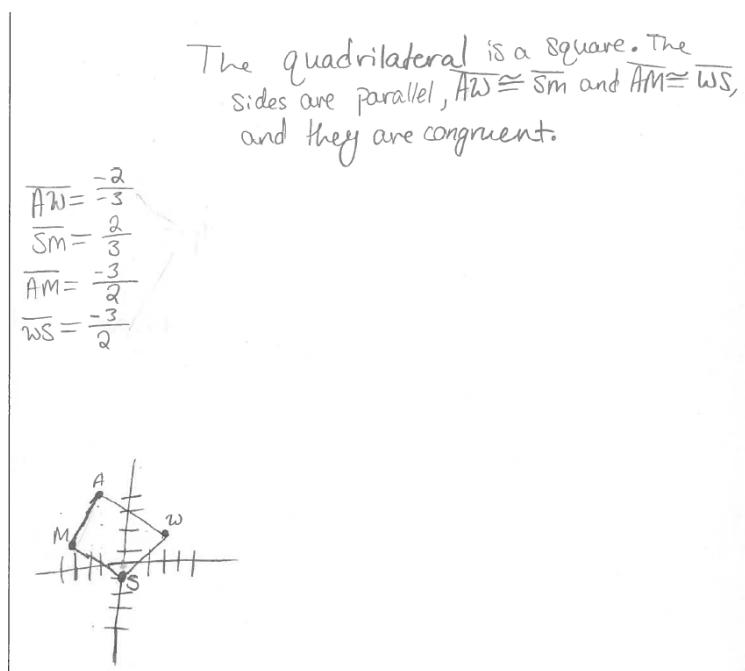 The quadrilateral is a square. The
sides are parallel, AW ≅ SM and AM ≅ WS,
and they are congruent.
AW = -2/-3
SM = 2/3
AM = -3/2
WS = -3/2
A
W
M
S